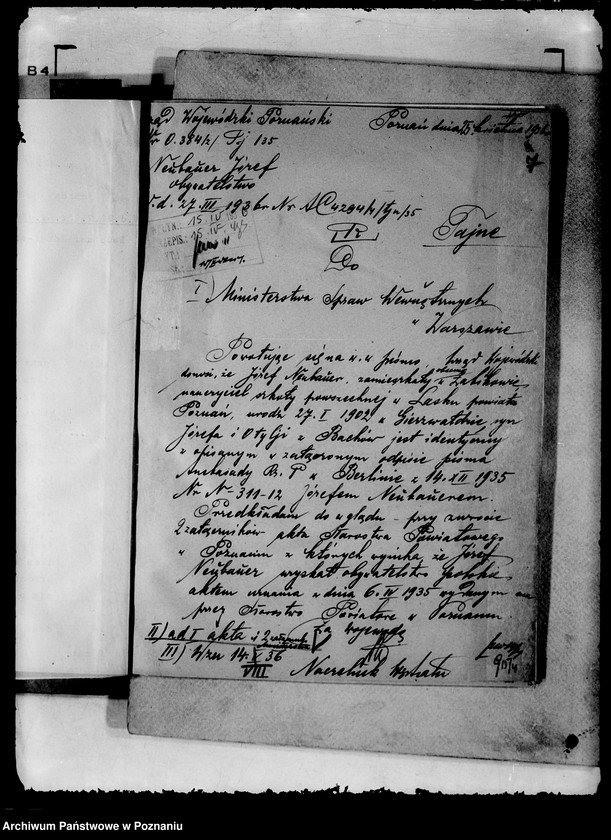 B4
Wojewódzki Poznański Poznań dnia kwietnia
Nr O. 384/2/ Pj 135
Neubauer Józef
obywatelstwo
d. 27. III 1936 r Nr AC 4284/4/Tjn/35
15. IV
15. IV.
Tajne
Do
I) Ministerstwa Spraw Wewnętrznych
w Warszawie
Powołując się na w. w. pismo, Urząd Wojewódzki
donosi, że Józef Neubauer, zamieszkały w Żabikowie
nauczyciel szkoły powszechnej w Lasku powiatu
Poznań, urodz 27. I 1902 w syn
Józefa i Otylji z Bachów jest identyczny
z opisanym w załączonym odpisie pisma
Ambasady R. P w Berlinie z 14. XII 1935
Nr N-311-12 Józefem Neubauerem.
Przedkładam do wglądu - przy zwrocie
2 załączników akta Starostwa Powiatowego
w Poznaniu z których wynika, że Józef
Neubauer uzyskał obywatelstwo polskie
aktem uznania z dnia 6. IV 1935 wydanym
przez Starostwo Powiatowe w Poznaniu.
II) ad I akta i 2
Za wojewodę
III) 14. X 36
VIII
Naczelnik Wydziału
Archiwum Państwowe w Poznaniu